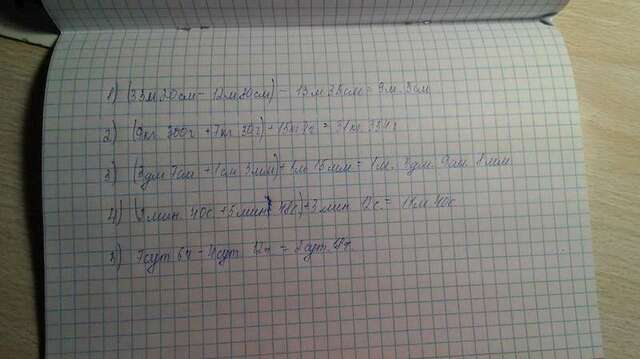 1) (33м 20см - 12м 80см) - 13м 38см = 9м 8см
2) (9кг 300г + 7кг 30г) + 15кг 4г = 31кг 334г
3) (3дм 7см + 1см 3мм) + 1м 15мм = 1м. дм. 9см. 8мм
4) мин 40с + 5мин 48с) + 3мин 12с = 11м 40с
5) 7сут 6ч - 4сут 12ч = 2сут. 18ч